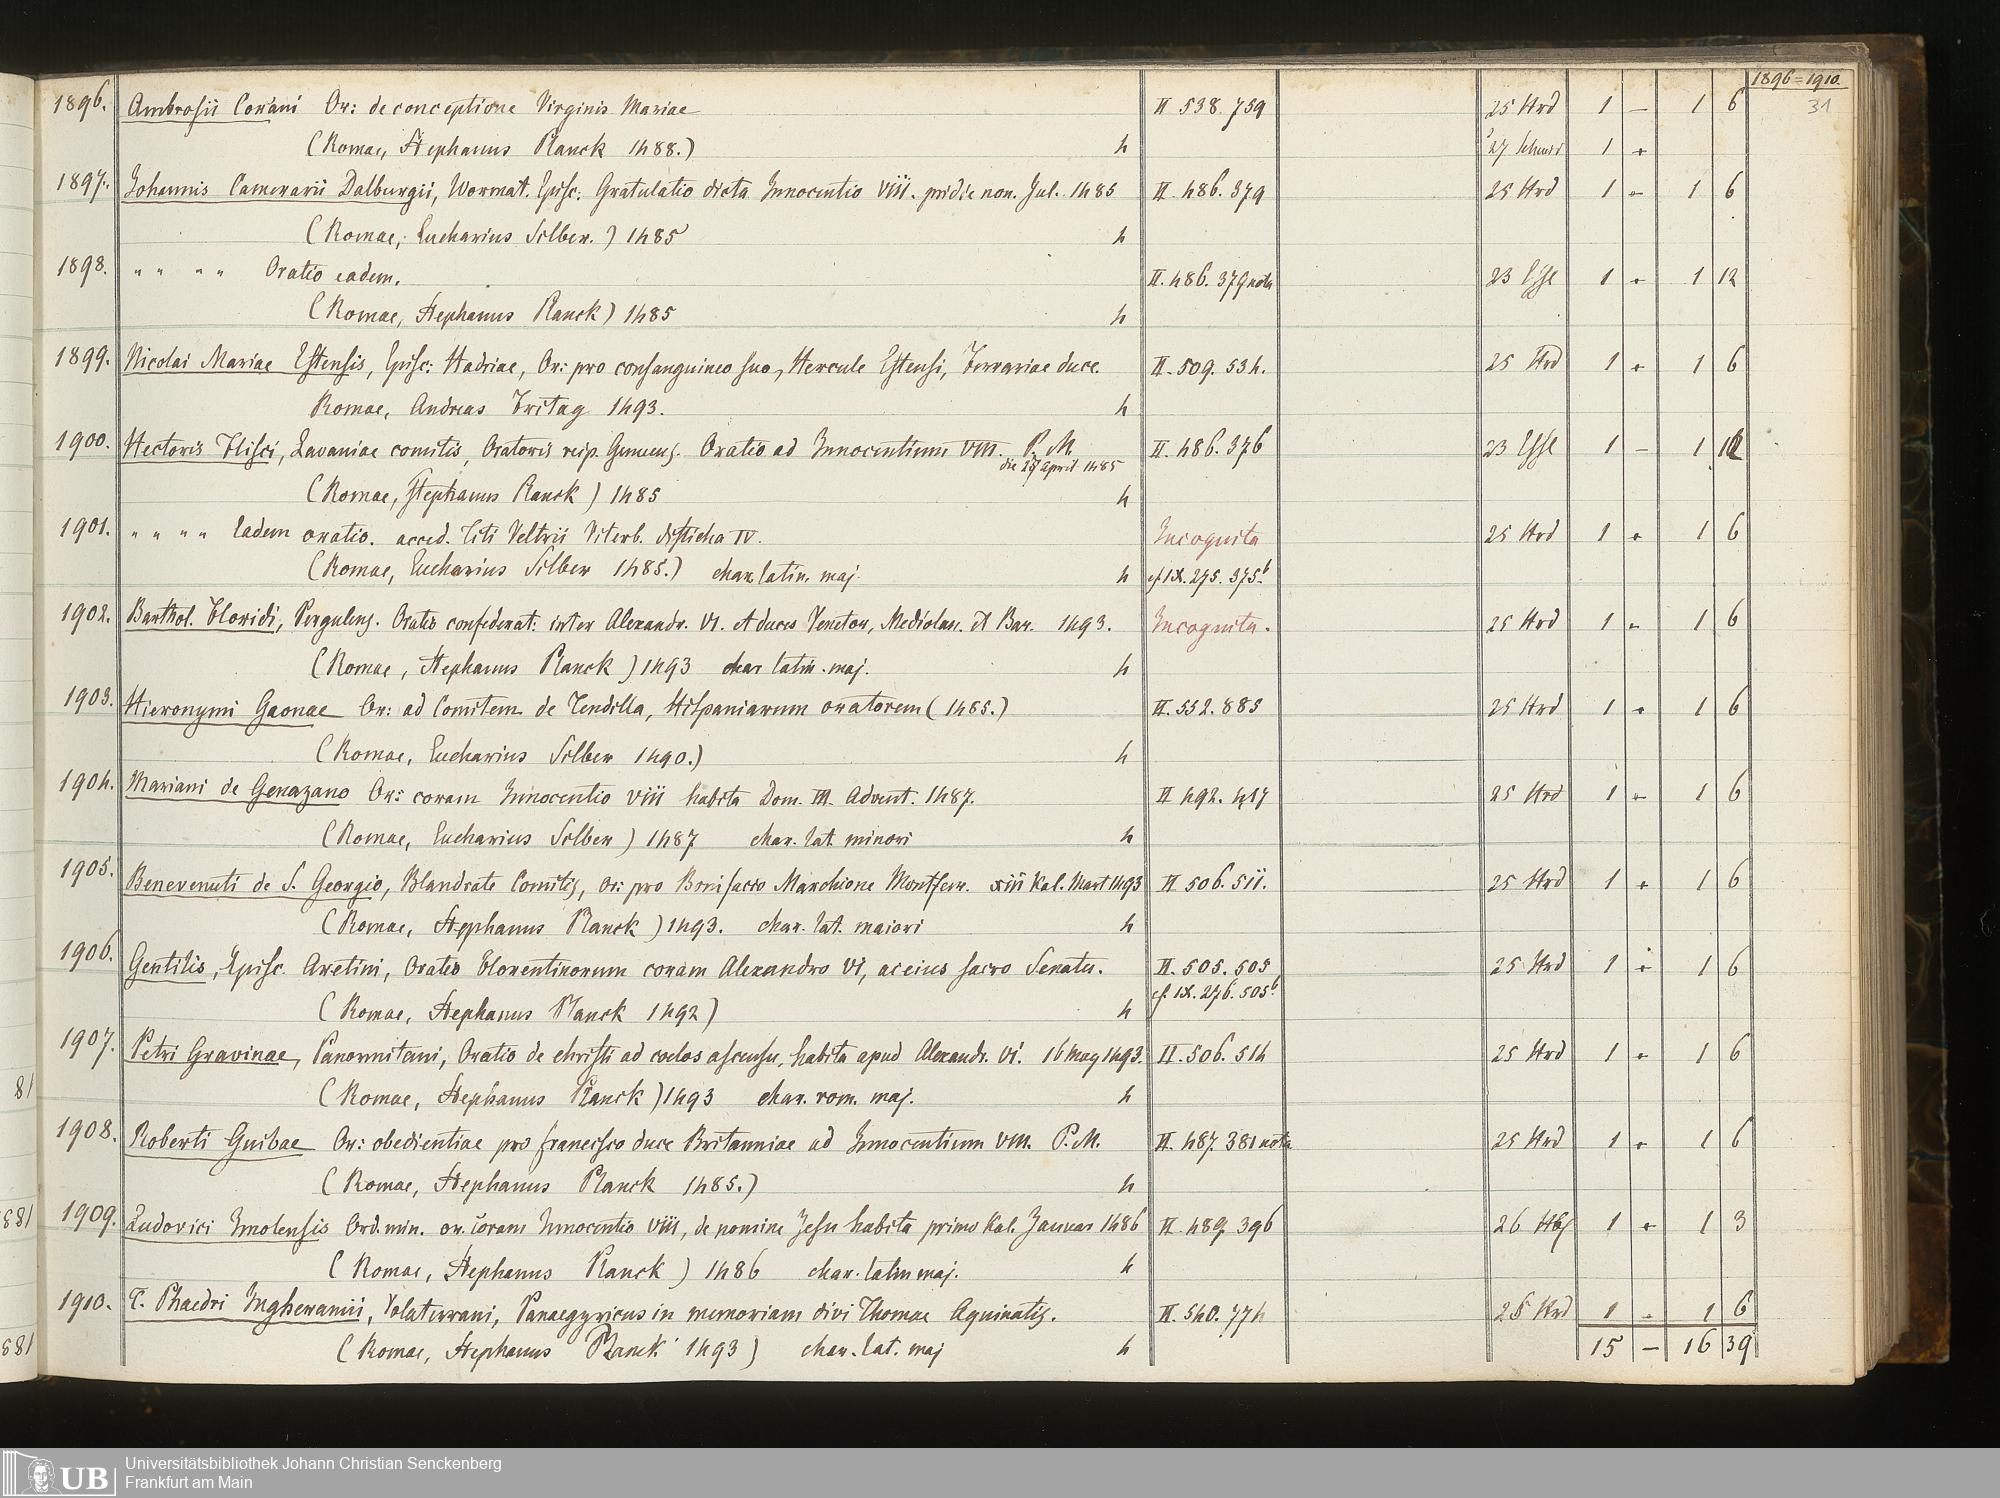 1896=1910.
31
1896. Ambrosii Coriani Or: de conceptione Virginis Mariae II 538. 759 25 Hrd 1 – 1 6
(Romae, Stephanus Planck 1488.) 4 27 1
1897. Johannis Camerarii Dalburgii, Wormat. Episc: Gratulatio dicta Innocentio VIII. pridie non. Jul. 1485 II. 486. 379 25 Hrd 1 – 1 6
(Romae, Eucharius Silber.) 1485 4
1898. " " " " Oratio eadem. II. 486. 379 nota 23 1 1 12
(Romae, Stephanus Planck) 1485 4
1899. Nicolai Mariae Estensis, Episc: Hadriae, Or: pro consanguineo suo, Hercule Estensi, Ferrariae duce. II. 509. 534. 25 Hrd 1 1 6
Romae, Andreas Fritag 1493. 4
1900. Hectoris Flisci, Lavaniae comitis, Oratoris reip. Genuens. Oratio ad Innocentium VIII. P. M. II. 486. 376 23 1 – 1
die 27 april 1485
(Romae, Stephanus Planck) 1485 4
1901. " " " " Eadem oratio. acced. Titi Veltrii Viterb. disticha IV. Incognita 25 Hrd 1 1 6
(Romae, Eucharius Silber 1485.) char. latin. maj. 4 cf. IX. 275. 375.b
1902. Barthol. Floridi, Pergulens. Oratio confederat: inter Alexandr. VI. et duces Venetor, Mediolan. et Bar. 1493. Incognita. 25 Hrd 1 – 1 6
(Romae, Stephanus Planck) 1493 char latin. maj. 4
1903. Hieronymi Gaonae Or: ad Comitem de Tendilla, Hispaniarum oratorem (1485.) II. 552. 885 25 Hrd 1 1 6
(Romae, Eucharius Silber 1490.) 4
1904. Mariani de Genazano Or: coram Innocentio VIII habita Dom. III. Advent. 1487. II 492. 417 25 Hrd 1 – 1 6
(Romae, Eucharius Silber) 1487 char. lat. minori 4
1905. Benevenuti de S. Georgio, Blandrate Comitis, Or: pro Bonifacio Marchione Montferr. XIII Kal. Mart 1493 II 506. 511. 25 Hrd 1 1 6
(Romae, Stephanus Planck) 1493. char. lat. maiori 4
1906. Gentilis, Episc. Aretini, Oratio Florentinorum coram Alexandro VI, ac eius sacro Senatu. II. 505. 505 25 Hrd 1 1 6
cf. IX. 276. 505.b
(Romae, Stephanus Planck 1492) 4
1907. Petri Gravinae, Panormitani, Oratio de christi ad coelos ascensu, habita apud Alexandr. VI. 16 May 1493. II. 506. 514 25 Hrd 1 1 6
(Romae, Stephanus Planck) 1493 char. rom. maj. 4
1908. Roberti Guibae Or: obedientiae pro francisco duce Britanniae ad Innocentium VIII. P. M. II. 487. 381 nota 25 Hrd 1 1 6
(Romae, Stephanus Planck 1485.) 4
1909. Ludovici Imolensis Ord. min. or. coram Innocentio VIII, de nomine Jesu habita primo Kal. Januar 1486 II. 489. 396 26 1 1 3
(Romae, Stephanus Planck) 1486 char. latin maj. 4
1910. T. Phaedri Ingheramii, Volaterrani, Panaegyricus in memoriam divi Thomae Aquinatis. II. 540. 774 25 Hrd 1 – 1 6
(Romae, Stephanus Planck 1493) char. lat. maj 4 15 – 16 39
UB
Universitätsbibliothek Johann Christian Senckenberg
Frankfurt am Main